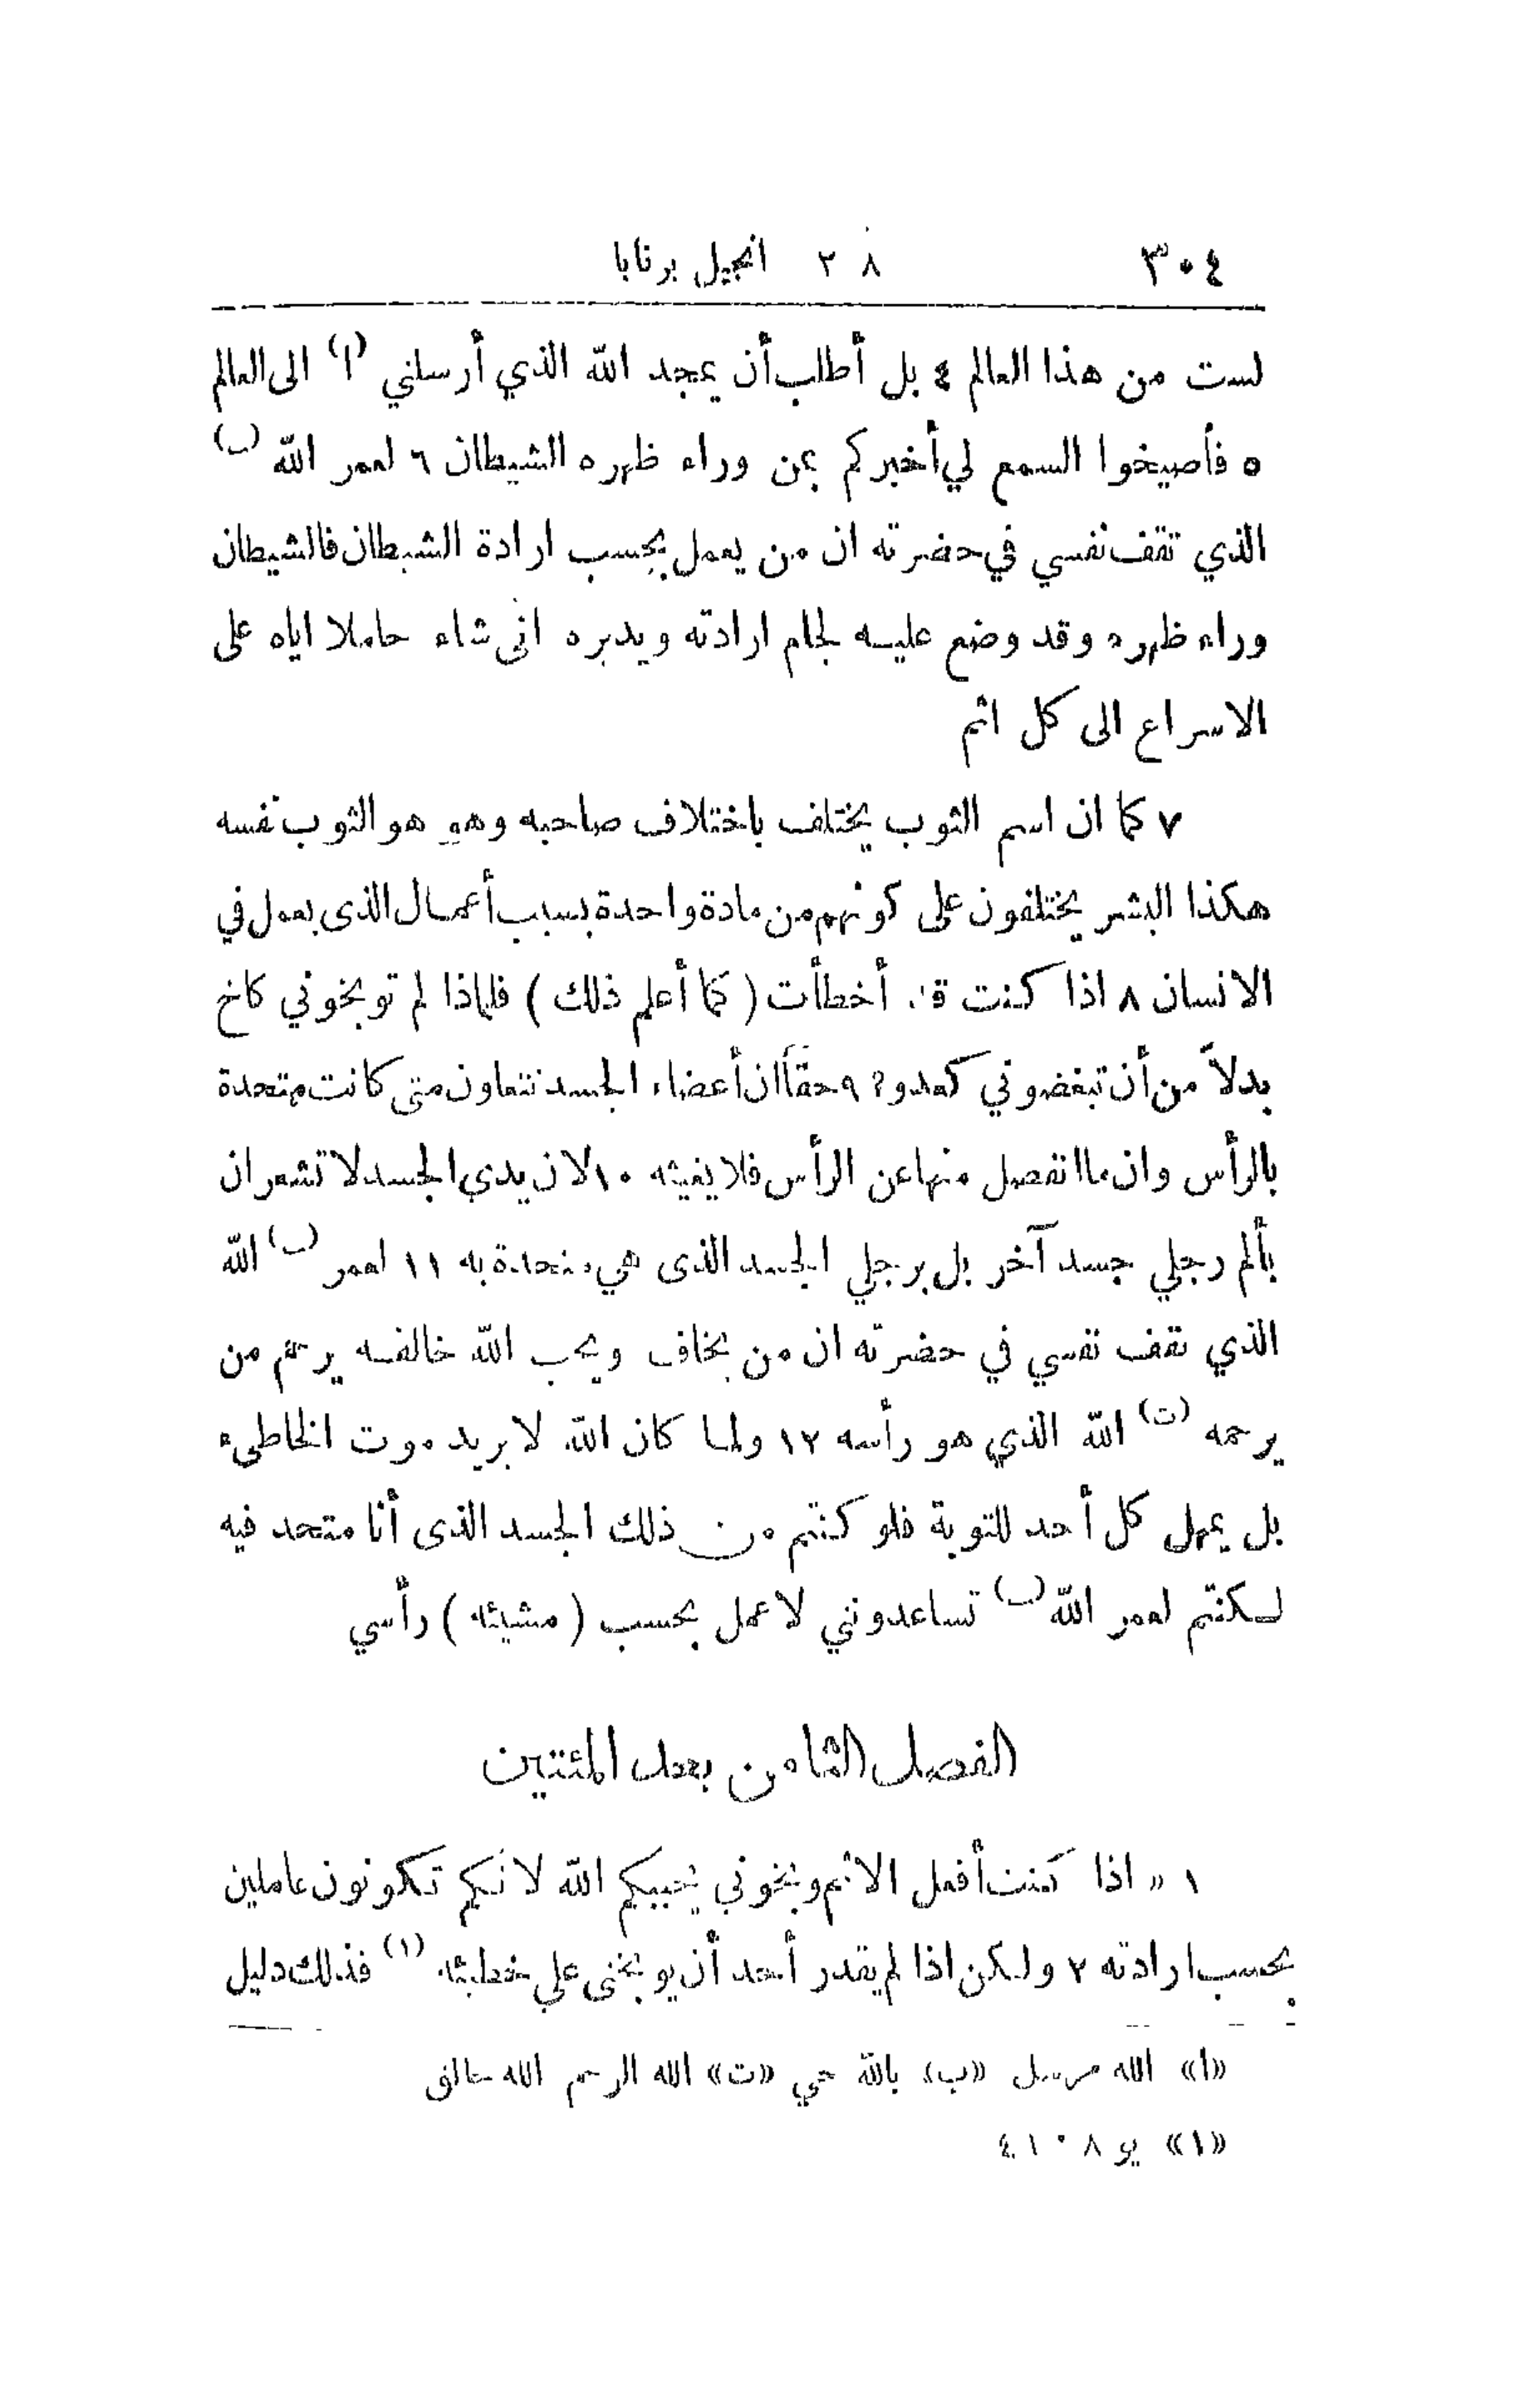 ٣٠٤ ٢ ٨ انجيل برنابا
لست من هذا العالم ٤ بل أطلب أن يمجد الله الذي أرسلني (ا) الى العالم
٥ فأصيخوا السمع لي أخبركم بمن وراء ظهره الشيطان ٦ لعمر الله (ب)
الذي تقف نفسي في حضرته ان من يعمل بحسب ارادة الشيطان فالشيطان
وراء ظهره وقد وضع عليه لجام ارادته ويدبره انى شاء حاملا اياه على
الاسراع الى كل اثم
٧ كما ان اسم الثوب يختلف باختلاف صاحبه وهو هو الثوب نفسه
هكذا البشر يختلفون على كونهم من مادة واحدة بسبب أعمال الذى يعمل في
الانسان ٨ اذا كنت قد أخطأت ( كما أعلم ذلك ) فلماذا لم توبخوني كاخ
بدلاً من أن تبغضوني كعدو؟ ٩ حقاً ان أعضاء الجسد تتعاون متى كانت متحدة
بالرأس وان ما انفصل منها عن الرأس فلا يغيثه ١٠ لان يدي الجسد لا تشعران
بألم رجلي جسد آخر بل برجلي الجسد الذى هي متحدة به ١١ لعمر (ب) الله
الذي تقف نفسي في حضرته ان من يخاف ويحب الله خالقه يرحم من
يرحمه (ت) الله الذي هو رأسه ١٢ ولما كان الله لا يريد موت الخاطىء
بل يمهل كل أحد للتوبة فلو كنتم من ذلك الجسد الذى أنا متحد فيه
لكنتم لعمر الله (ب) تساعدونني لاعمل بحسب ( مشيئة ) رأسي
الفصل الثامن بعد المئتين
١ » اذا كنت أفعل الاثم وبخوني يحببكم الله لانكم تكونون عاملين
بحسب ارادته ٢ ولكن اذا لم يقدر أحد أن يوبخنى على خطيئة (١) فذلك دليل
«ا» الله مرسل «ب» بالله حي «ت» الله الرحم الله خالق
«١» يو ٨ ٠ ٤١